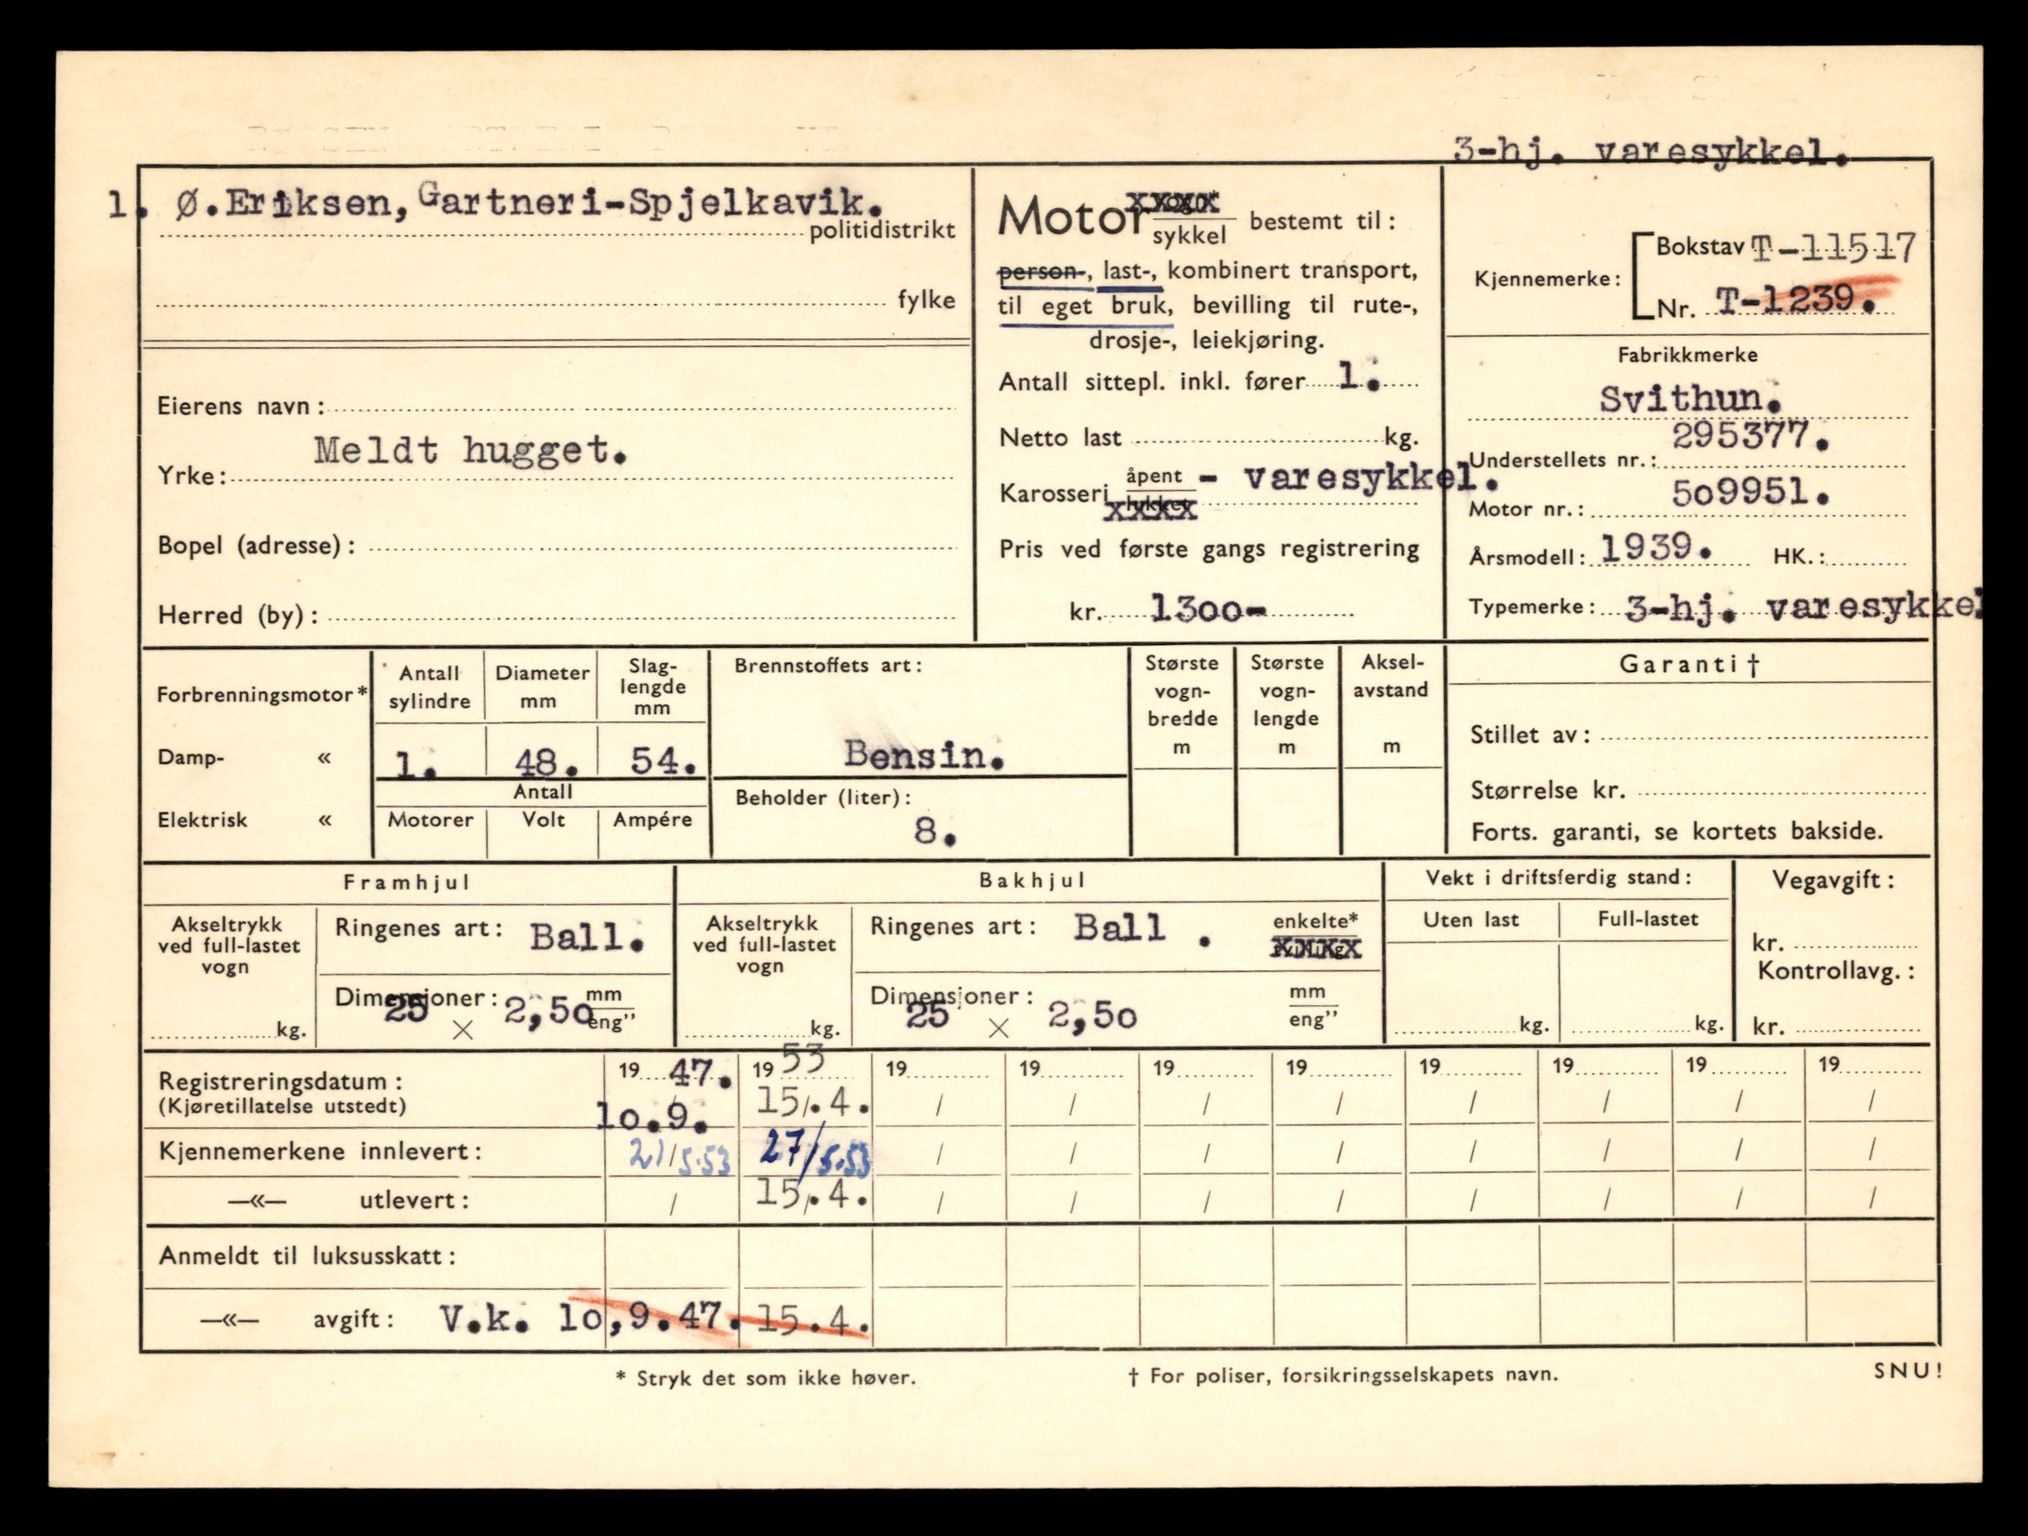 3-hj. varesykkel.
1. Ø.Eriksen, Gartneri-Spjelkavik.
politidistrikt
fylke
Eierens navn:
Meldt hugget.
Yrke:
Bopel (adresse):
Herred (by):
Motor vogn*
sykkel bestemt til:
person-, last-, kombinert transport,
til eget bruk, bevilling til rute-,
drosje-, leiekjøring.
Antall sittepl. inkl. fører 1.
Netto last kg.
Karosseri åpent - varesykkel.
lukket
Pris ved første gangs registrering
kr. 13oo-
Kjennemerke: Bokstav T-11517
Nr. T-1239.
Fabrikkmerke
Svithun.
Understellets nr.: 295377.
Motor nr.: 5o9951.
Årsmodell: 1939. HK.:
Typemerke: 3-hj. varesykkel
Forbrenningsmotor*
Damp- «
Elektrisk «
Antall sylindre Diameter mm Slag-lengde mm
1. 48. 54.
Antall
Motorer Volt Ampére
Brennstoffets art:
Bensin.
Beholder (liter):
8.
Største vogn-bredde m
Største vogn-lengde m
Aksel-avstand m
Garanti †
Stillet av:
Størrelse kr.
Forts. garanti, se kortets bakside.
Framhjul
Akseltrykk ved full-lastet vogn
kg.
Ringenes art: Ball.
Dimensjoner: mm
25 × 2,5o eng"
Bakhjul
Akseltrykk ved full-lastet vogn
kg.
Ringenes art: Ball . enkelte*
Dimensjoner: mm
25 × 2,5o eng"
Vekt i driftsferdig stand:
Uten last Full-lastet
kg. kg.
Vegavgift:
kr.
Kontrollavg.:
kr.
Registreringsdatum: 19 47. 19 53 19 19 19 19 19 19 19 19
(Kjøretillatelse utstedt) 1o.9. 15/.4. / / / / / / / /
Kjennemerkene innlevert: 21/5.53 27/5.53 / / / / / / / /
—«— utlevert: / 15/.4. / / / / / / / /
Anmeldt til luksusskatt:
—«— avgift: V.k. 1o,9.47. 15.4.
* Stryk det som ikke høver.
† For poliser, forsikringsselskapets navn.
SNU!